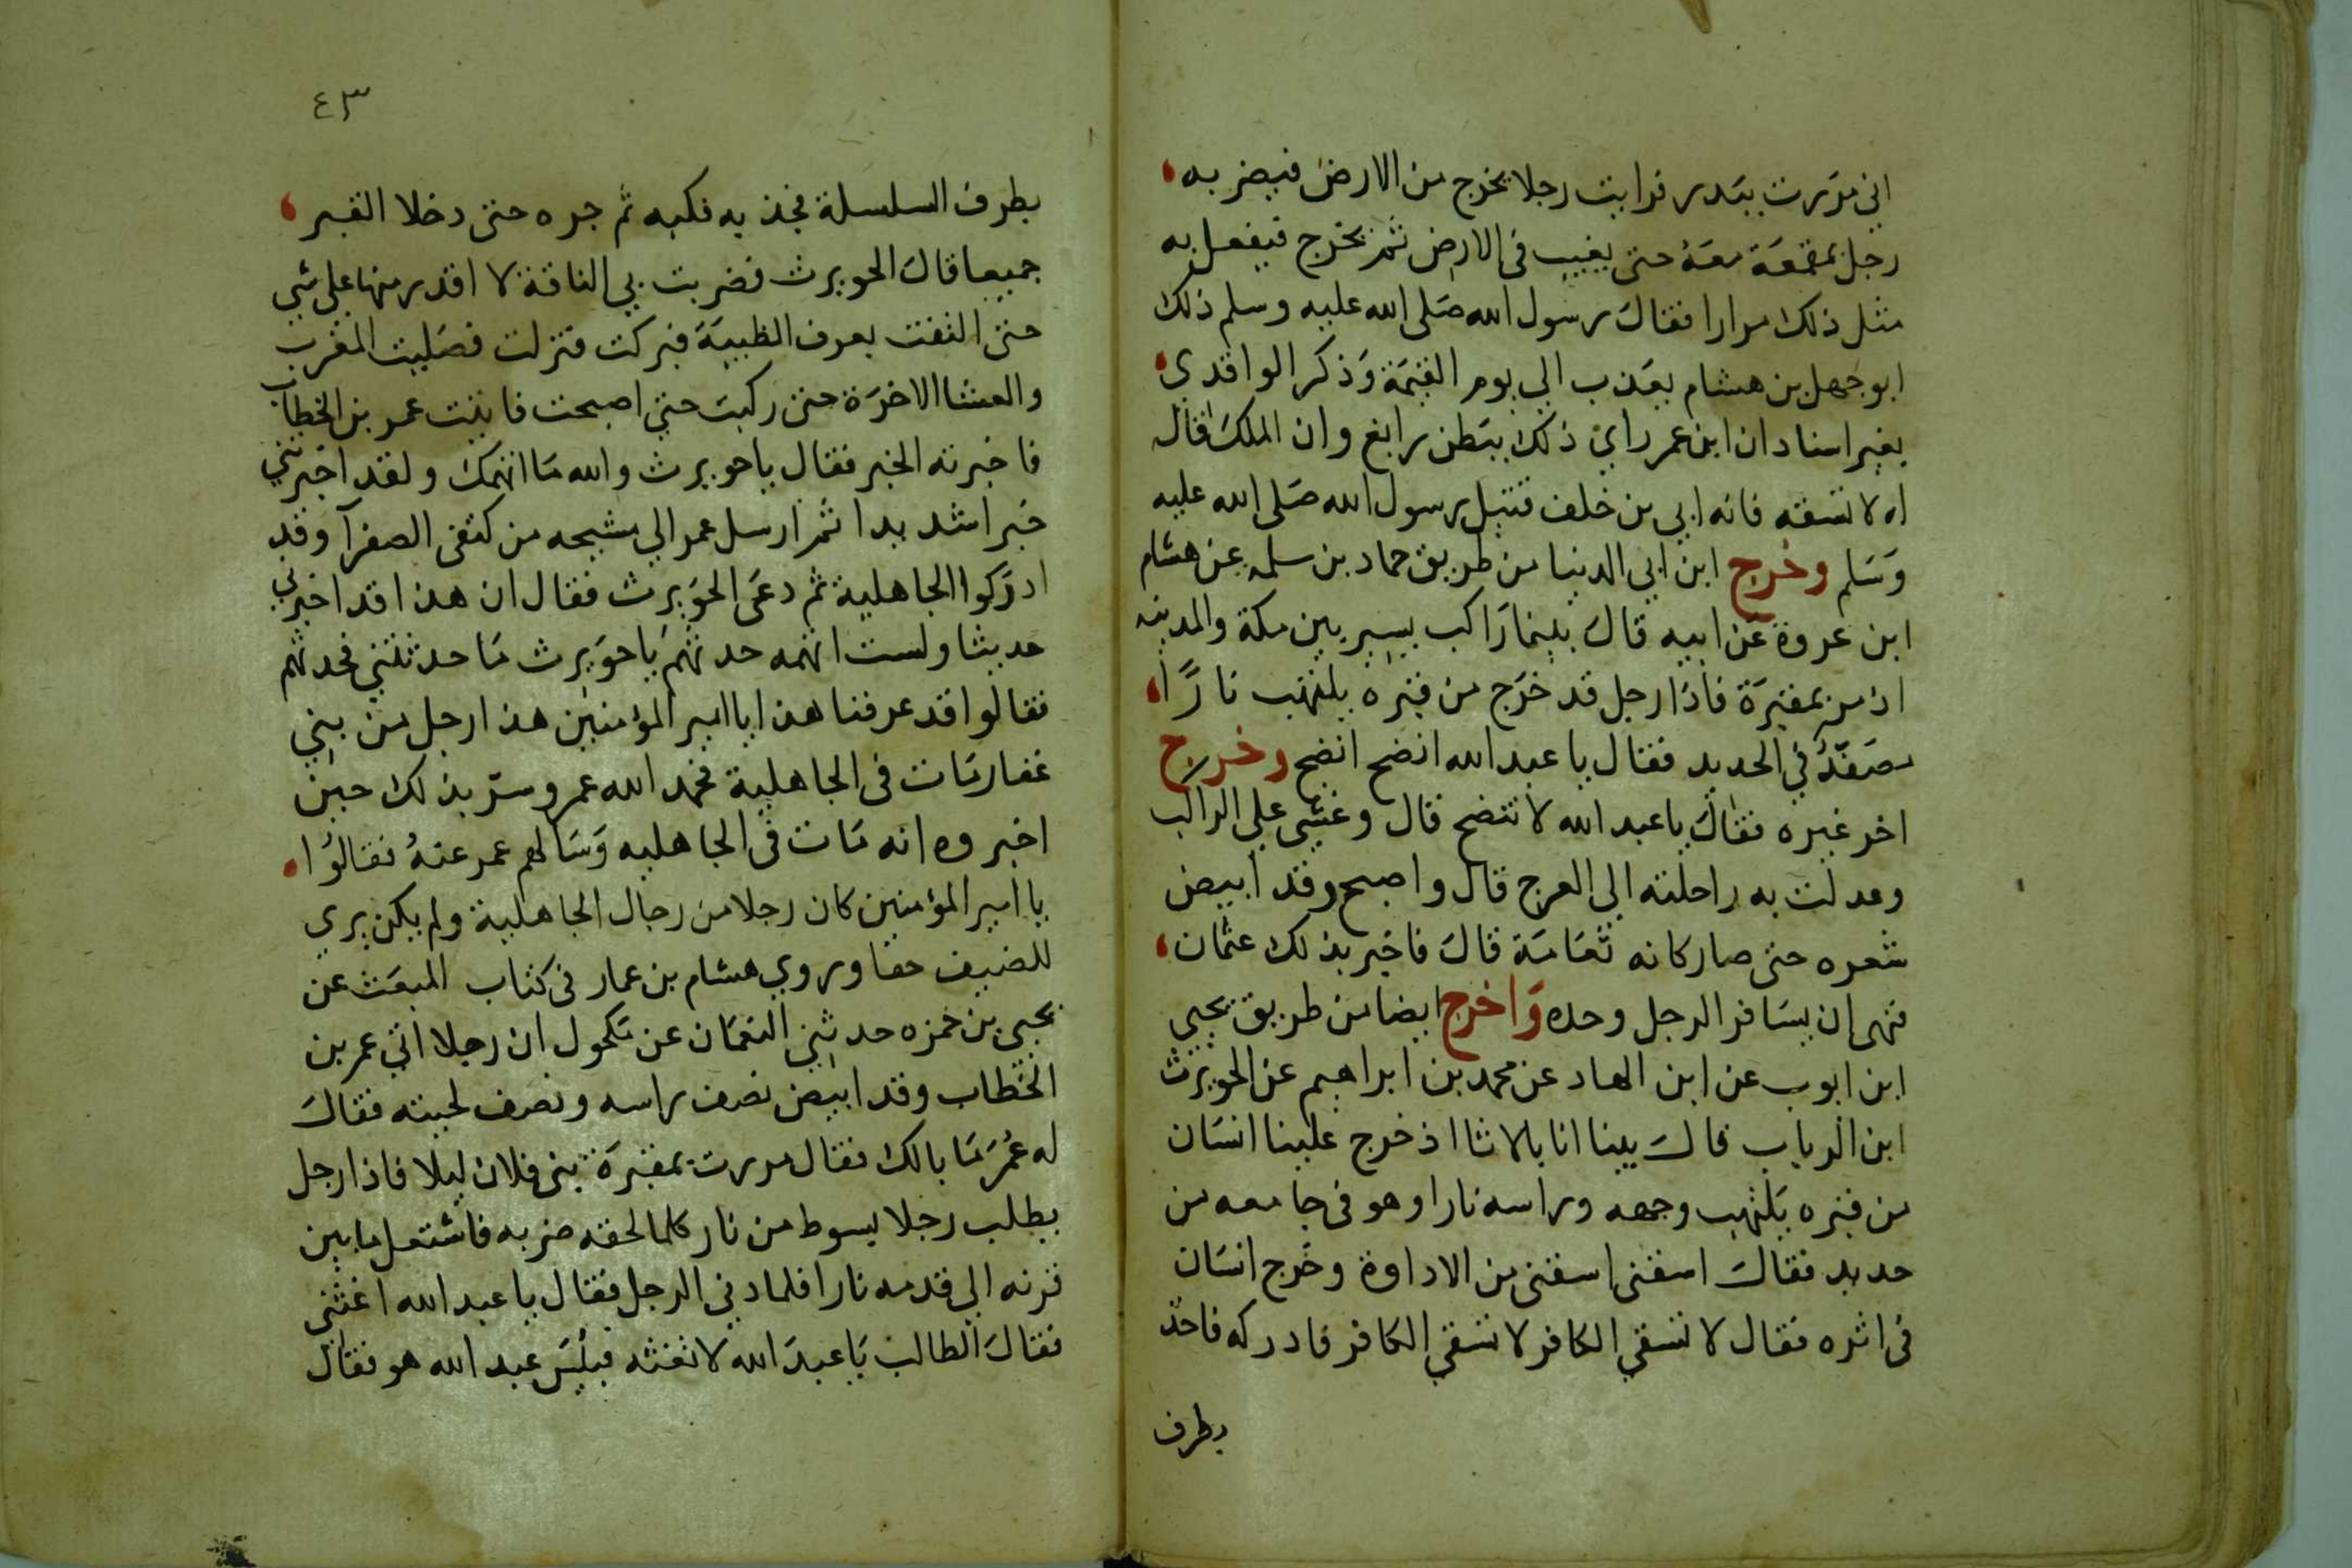 اني مررت ببدر فرايت رجلا يخرج من الارض فيضربه
رجل بمقمعة معه حتى يغيب في الارض ثم يخرج فيفعل به
مثل ذلك مرارا فقال رسول الله صلى الله عليه وسلم ذلك
ابو جهل بن هشام يعذب الي يوم القيمة وذكر الواقدي
بغير اسناد ان ابن عمر راي ذلك ببطن رابغ وان الملك قال
له لا تسقه فانه ابي بن خلف قتيل رسول الله صلى الله عليه
وسلم وخرج ابن ابي الدنيا من طريق حماد بن سلمه عن هشام
ابن عروة عن ابيه قال بينما راكب يسير بين مكة والمدينه
اذ مر بمقبرة فاذا رجل قد خرج من قبره يلتهب نارا
مصفد في الحديد فقال يا عبد الله انضح انضح وخرج
اخر غيره فقال يا عبد الله لا تنضح قال وغشي علي الراكب
وعدلت به راحلته الي العرج قال واصبح وقد ابيض
شعره حتى صار كانه ثغامة قال فاخبر بذلك عثمان
فنهى ان يسافر الرجل وحده واخرج ايضا من طريق يحيي
ابن ايوب عن ابن الهاد عن محمد بن ابراهيم عن الحويرث
ابن الرباب قال بينا انا بالاثا اذ خرج علينا انسان
من قبره يلتهب وجهه وراسه نارا وهو في جامعه من
حديد فقال اسقني اسقني من الاداوة وخرج انسان
في اثره فقال لا تسقي الكافر لا تسقي الكافر فادركه فاخذ
بطرف
٤٣
بطرف السلسلة فجذبه فكبه ثم جره حتى دخلا القبر
جميعا قال الحويرث فضربت بي الناقة لا اقدر منها علي شي
حتى التفت بعرف الظبية فبركت فنزلت فصليت المغرب
والعشا الاخرة حتى ركبت حتي اصبحت فاتيت عمر بن الخطاب
فاخبرته الخبر فقال يا حويرث والله ما اتهمك ولقد اخبرتني
خبرا شديدا ثم ارسل عمر الي مشيخه من كنفى الصفرآ وقد
ادركوا الجاهلية ثم دعى الحويرث فقال ان هذا قد اخبرني
حديثا ولست اتهمه حدثهم يا حويرث ما حدثتني فحدثهم
فقالوا قد عرفنا هذا يا امير المؤمنين هذا رجل من بني
غفار مات في الجاهلية فحمد الله عمر وسر بذلك حين
اخبروه انه مات في الجاهليه وسالهم عمر عنه فقالوا
يا امير المؤمنين كان رجلا من رجال الجاهلية ولم يكن يري
للضيف حقا وروي هشام بن عمار في كتاب المبعث عن
يحيي بن حمزه حدثني النعمان عن مكحول ان رجلا اتي عمر بن
الخطاب وقد ابيض نصف راسه ونصف لحيته فقال
له عمر ما بالك فقال مررت بمقبرة بني فلان ليلا فاذا رجل
يطلب رجلا بسوط من نار كلما لحقه ضربه فاشتعل ما بين
قرنه الي قدمه نارا فلما دنى الرجل فقال يا عبد الله اغثني
فقال الطالب يا عبد الله لا تغثه فبئس عبد الله هو فقال